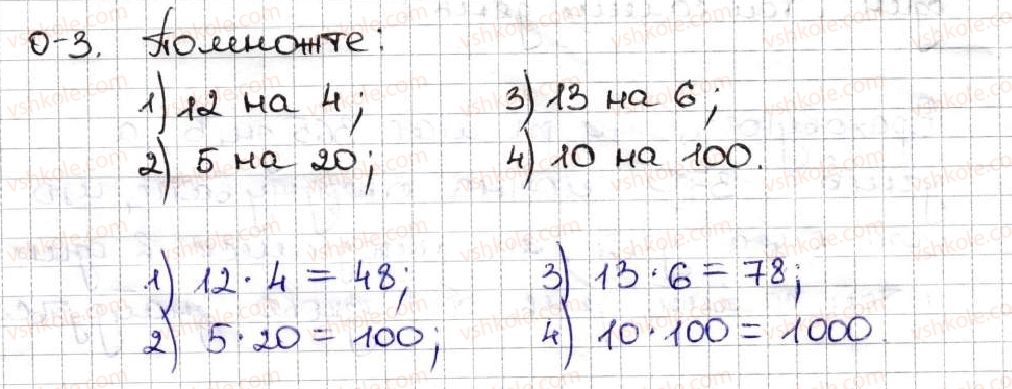 0-3. Помножте:
1) 12 на 4; 3) 13 на 6;
2) 5 на 20; 4) 10 на 100.
1) 12 · 4 = 48; 3) 13 · 6 = 78;
2) 5 · 20 = 100; 4) 10 · 100 = 1000.